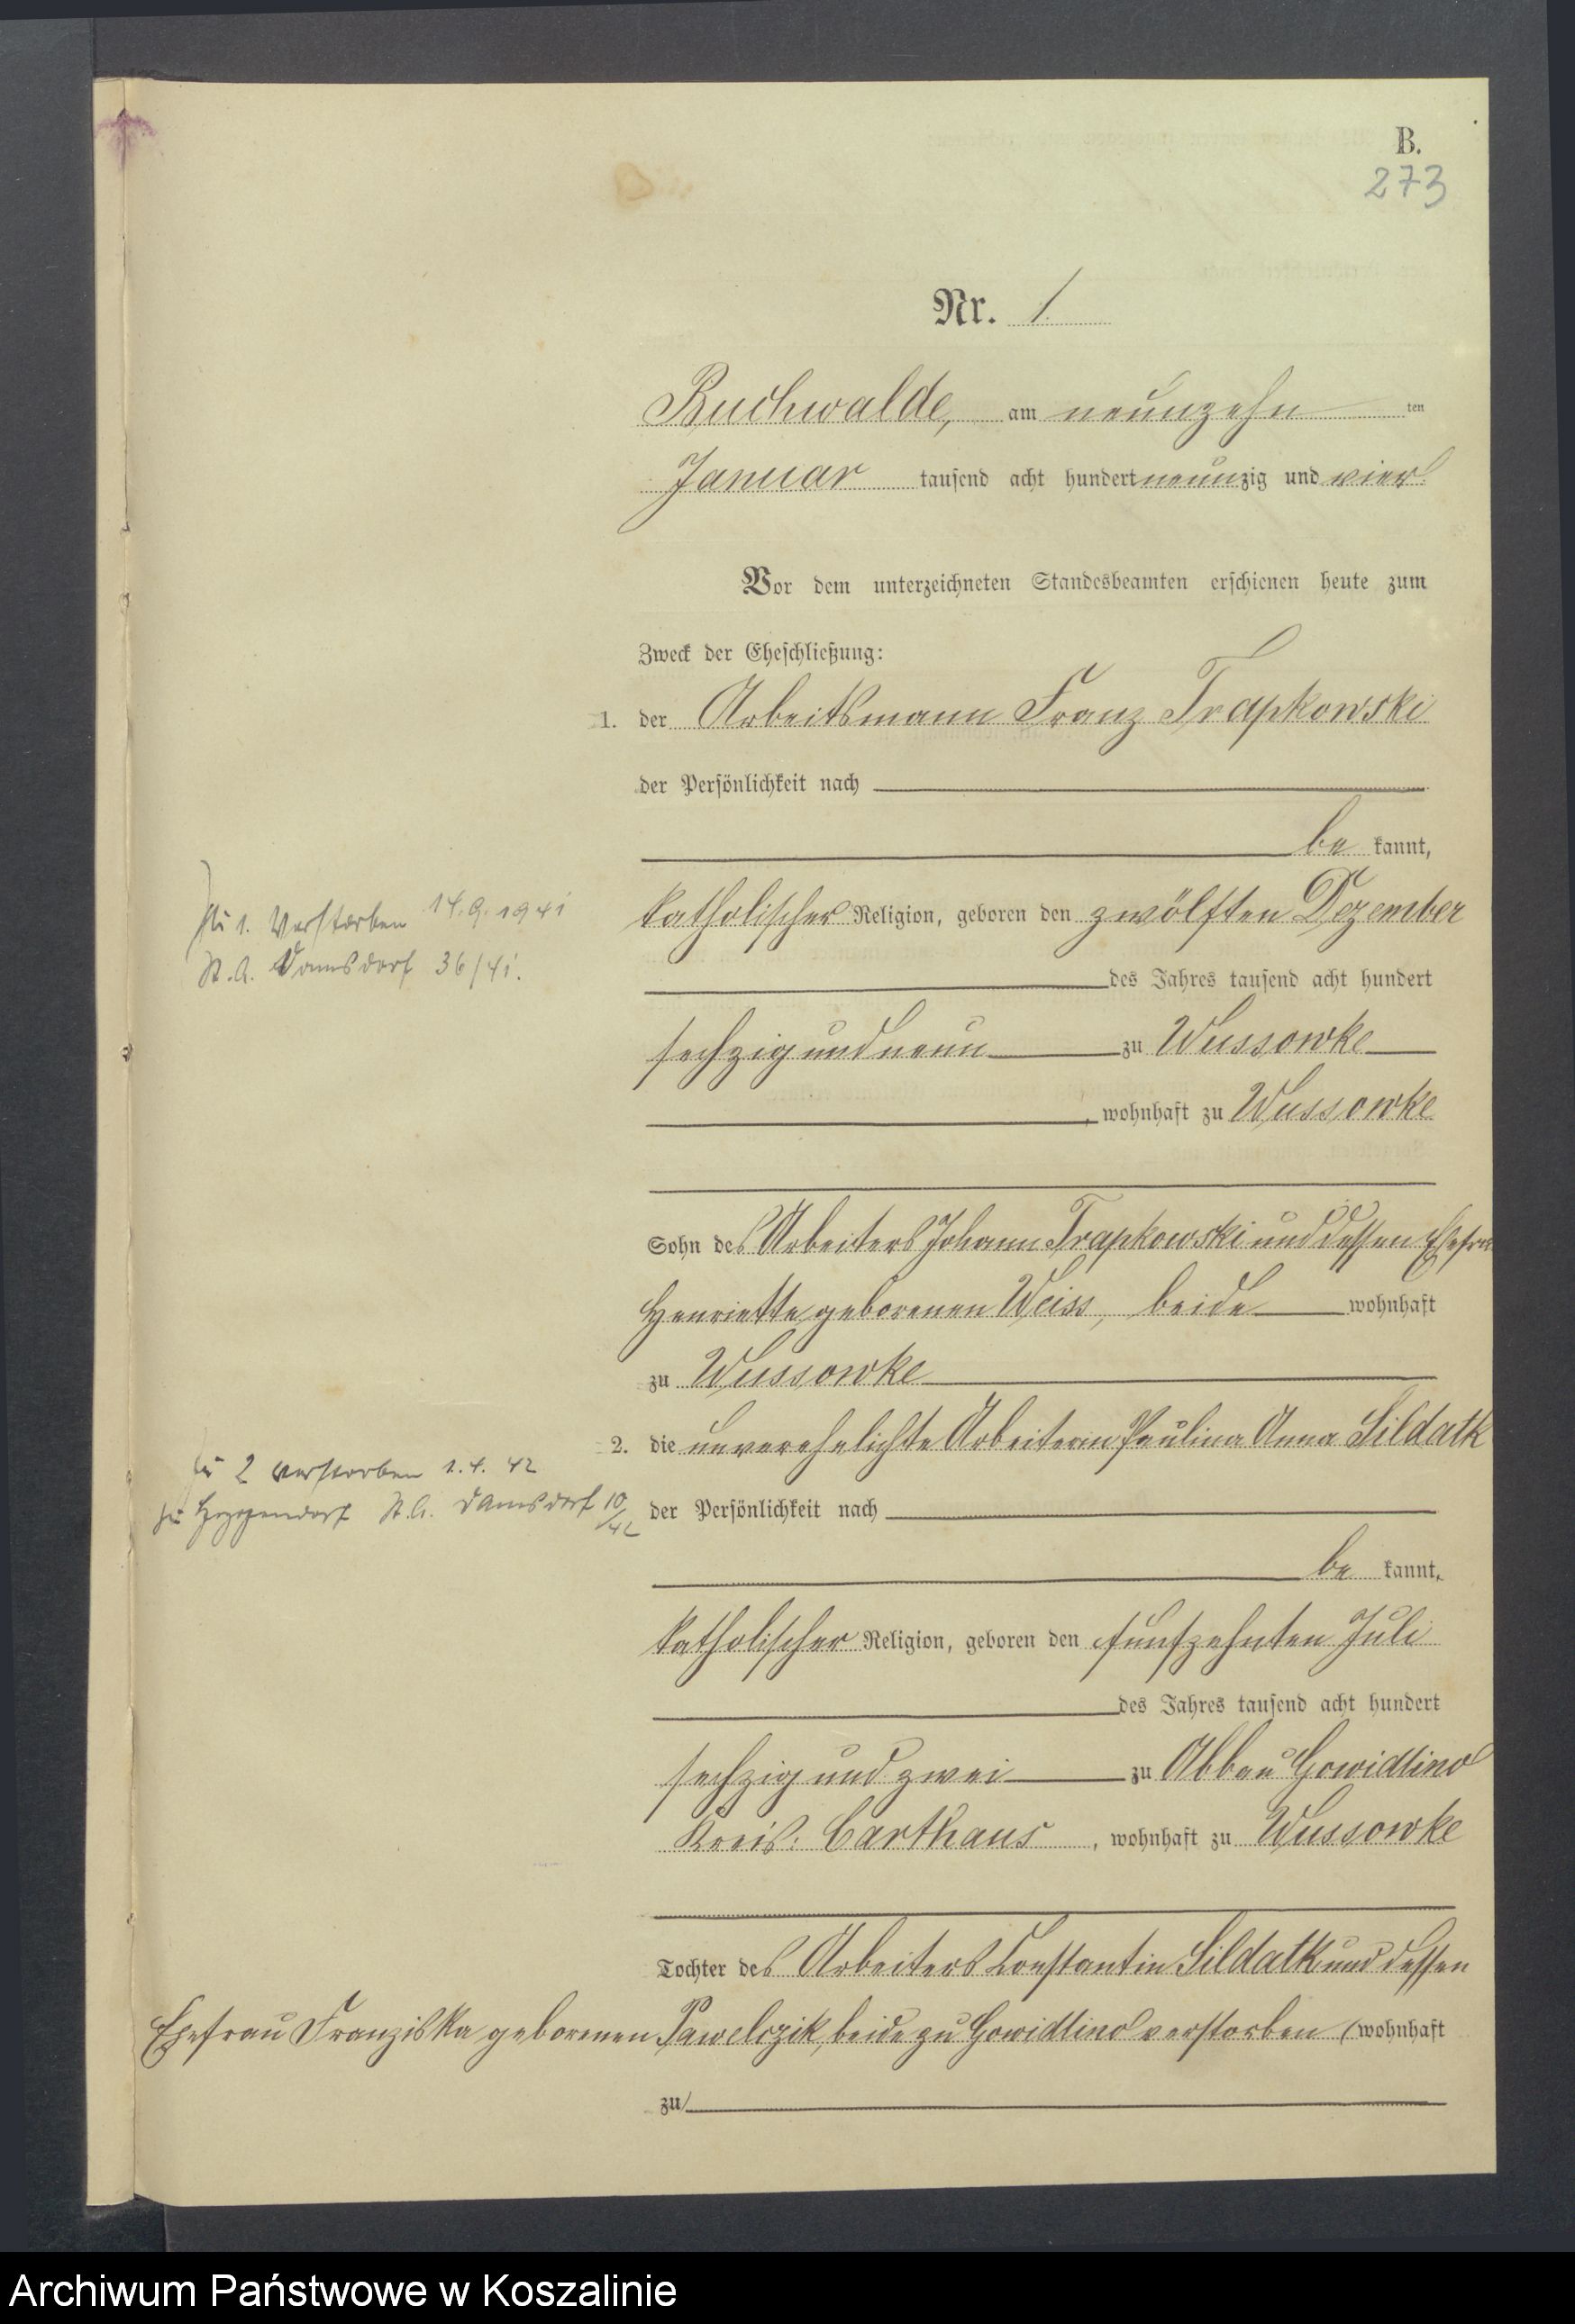 B.
273
Nr. 1
Buchwalde, am neunzehn ten
Januar tausend acht hundert neunzig und vier
Vor dem unterzeichneten Standesbeamten erschienen heute zum
Zweck der Eheschließung:
1. der Arbeitsmann Franz Trapkowski
der Persönlichkeit nach
be kannt,
katholischer Religion, geboren den zwölften Dezember
des Jahres tausend acht hundert
sechzig und neun zu Wussowke
, wohnhaft zu Wussowke
Sohn des Arbeiters Johann Trapkowski und dessen Ehefrau
Henriette geborenen Weiss, beide wohnhaft
zu Wussowke
2. die unverehelichte Arbeiterin Paulina Anna Sildatk
der Persönlichkeit nach
be kannt,
katholischer Religion, geboren den fünfzehnten Juli
des Jahres tausend acht hundert
sechzig und zwei zu Abbau Gowidlino
Kreis: Carthaus, wohnhaft zu Wussowke
Tochter des Arbeiters Constantin Sildatk und dessen
Ehefrau Franziska geborenen Pawelczik, beide zu Gowidlino verstorben (wohnhaft
zu)
Zu 1. Verstorben 14.9.1941
St.A. Damsdorf 36/41.
Zu 2 verstorben 1.4.42
zu St.A. Damsdorf 10/42
Archiwum Państwowe w Koszalinie